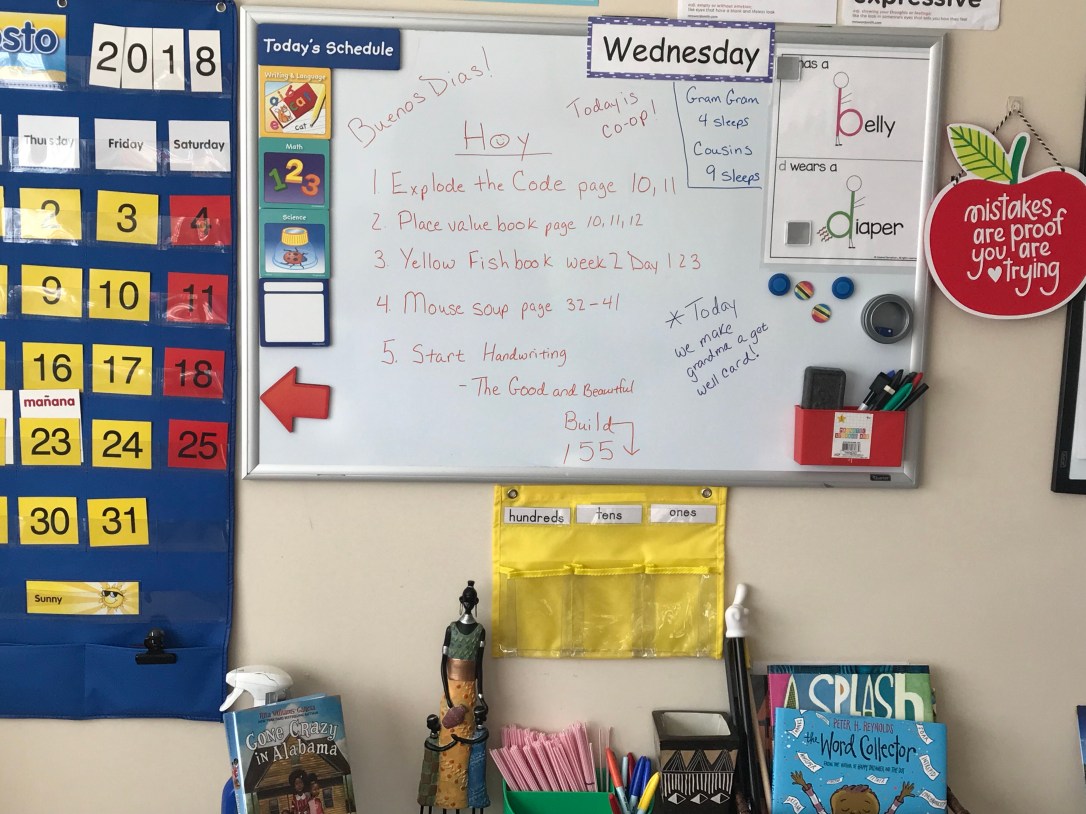 osto
2018
Thursday Friday Saturday
2 3 4
9 10 11
16 17 18
mañana
23 24 25
30 31
Sunny
Today's Schedule
Writing & Language
cat
Math
1 2 3
Science
Wednesday
Buenos Dias!
Today is
co-op!
Gram Gram
4 sleeps
Cousins
9 sleeps
Hoy
1 Explode the Code page 10, 11
2. Place value book page 10, 11, 12
3. Yellow Fish book week 2 Day 1 2 3
4. Mouse soup page 32-41
5. Start Handwriting
- The Good and Beautiful
Build
155
* Today
we make
grandma a get
well card!
expressive
has a
belly
d wears a
diaper
mistakes
are proof
you are
trying
hundreds tens ones
Rita Williams-Garcia
Gone Crazy
in Alabama
A SPLASH
PETER H. REYNOLDS
the Word Collector